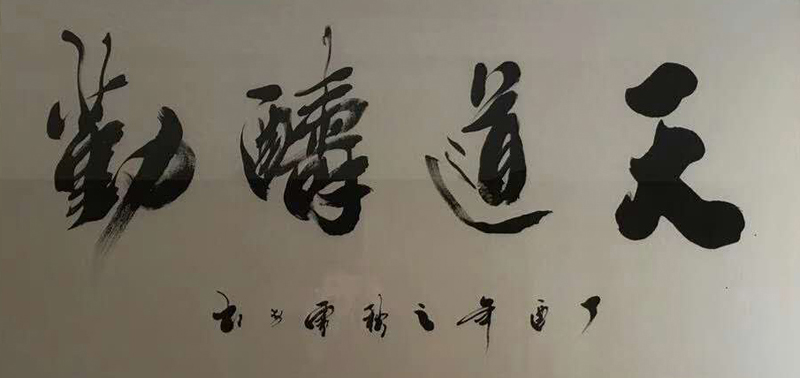 天道醻勤
丁酉年之秋